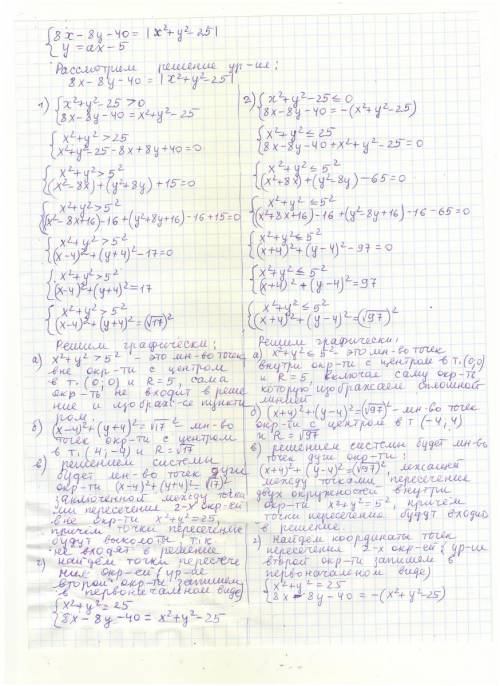 {8x-8y-40=|x²+y²-25|
{y=ax-5
Рассмотрим решение ур-ия:
8x-8y-40=|x²+y²-25|
1) {x²+y²-25>0
{8x-8y-40=x²+y²-25
{x²+y²>25
{x²+y²-25-8x+8y+40=0
{x²+y²>5²
{(x²-8x)+(y²+8y)+15=0
{x²+y²>5²
{(x²-8x+16)-16+(y²+8y+16)-16+15=0
{x²+y²>5²
{(x-4)²+(y+4)²-17=0
{x²+y²>5²
{(x-4)²+(y+4)²=17
{x²+y²>5²
{(x-4)²+(y+4)²=(√17)²
Решим графически:
а) x²+y²>5² - это мн-во точек
вне окр-ти с центром
в т. (0;0) и R=5, сама
окр-ть не входит в реше
ние и изображ-ся пункти
ром.
б) (x-4)²+(y+4)²=√17² мн-во
точек окр-ти с центром
в т. (4;-4) и R=√17
в) решением системы
будет мн-во точек дуги
окр-ти (x-4)²+(y+4)²=(√17)²
заключенной между точка
ми пересечения 2-х окр-ей
вне окр-ти x²+y²=25,
причем точки пересечения
будут выколоты т.к.
не входят в решение
г) найдем точки пересече
ния окр-ей (ур-ие
второй окр-ти запишем
в первоначальном виде)
{x²+y²=25
{8x-8y-40=x²+y²-25
2) {x²+y²-25≤0
{8x-8y-40=-(x²+y²-25)
{x²+y²≤25
{8x-8y-40+x²+y²-25=0
{x²+y²≤5²
{(x²+8x)+(y²-8y)-65=0
{x²+y²≤5²
{(x²+8x+16)-16+(y²-8y+16)-16-65=0
{x²+y²≤5²
{(x+4)²+(y-4)²-97=0
{x²+y²≤5²
{(x+4)²+(y-4)²=97
{x²+y²≤5²
{(x+4)²+(y-4)²=(√97)²
Решим графически:
а) x²+y²≤5² это мн-во точек
внутри окр-ти с центром в т.(0;0)
и R=5, включая саму окр-ть
которую изображаем сплошной
линией
б) (x+4)²+(y-4)²=(√97)² - мн-во точек
окр-ти с центром в т (-4;4)
и R=√97
в) решением системы будет мн-во
точек дуги окр-ти:
(x+4)²+(y-4)²=(√97)², лежащей
между точками пересечения
двух окружностей внутри
окр-ти x²+y²=5², причем
точки пересечения будут входить
в решение.
г) найдем координаты точек
пересечения 2-х окр-ей (ур-ие
второй окр-ти запишем в
первоначальном виде)
{x²+y²=25
{8x-8y-40=-(x²+y²-25)